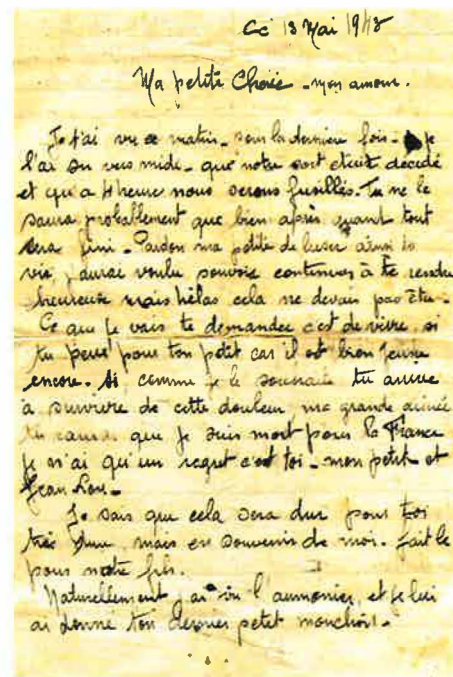 Ce 13 Mai 1943
Ma petite Chérie - mon amour.
Je t'ai vu ce matin - pour la dernière fois - je
l'ai su vers midi - que notre sort etait décidé
et qu'a 4 heure nous serons fusillés. Tu ne le
saura probablement que bien après quant tout
sera fini - Pardon ma petite de briser ainsi ta
vie, j'aurai voulu pouvoir continuer à te rendre
heureuse mais hélas cela ne devais pas être -
Ce que je vais te demander c'est de vivre, si
tu peux pour ton petit car il est bien jeune
encore. Si comme je le souhaite tu arrive
à survivre de cette douleur, ma grande aimée
tu sauras que je suis mort pour la France
je n'ai qu'un regret c'est toi - mon petit et
Jean Lou -
Je sais que cela sera dur pour toi
très dur, mais en souvenir de moi - fait le
pour notre fils.
Naturellement j'ai vu l'aumonier, et je lui
ai donné ton dernier petit mouchoir -